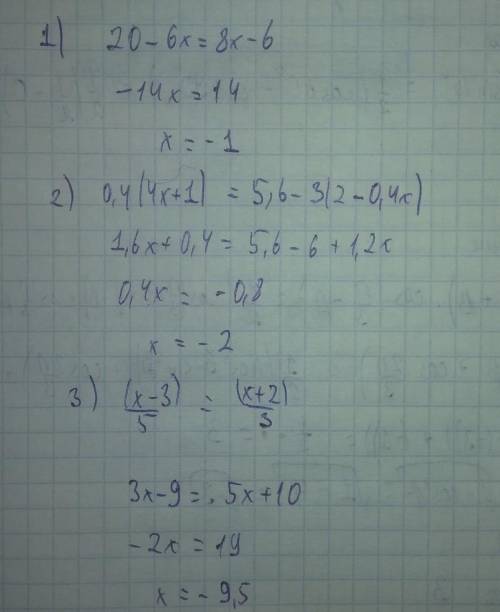 1) 20 - 6x = 8x - 6
-14x = 14
x = -1
2) 0,4(4x+1) = 5,6 - 3(2 - 0,4x)
1,6x + 0,4 = 5,6 - 6 + 1,2x
0,4x = -0,8
x = -2
3) (x-3)/5 = (x+2)/3
3x - 9 = 5x + 10
-2x = 19
x = -9,5